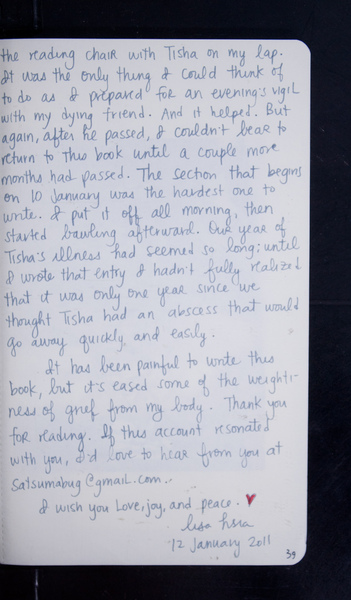 the reading chair with Tisha on my lap.
It was the only thing I could think of
to do as I prepared for an evening's vigil
with my dying friend. And it helped. But
again, after he passed, I couldn't bear to
return to this book until a couple more
months had passed. The section that begins
on 10 January was the hardest one to
write. I put it off all morning, then
started bawling afterward. Our year of
Tisha's illness had seemed so long; until
I wrote that entry I hadn't fully realized
that it was only one year since we
thought Tisha had an abscess that would
go away quickly and easily.
It has been painful to write this
book, but it's eased some of the weighti-
ness of grief from my body. Thank you
for reading. If this account resonated
with you, I'd love to hear from you at
satsumabug@gmail.com.
I wish you love, joy, and peace. ♥
lisa hsia
12 January 2011
39